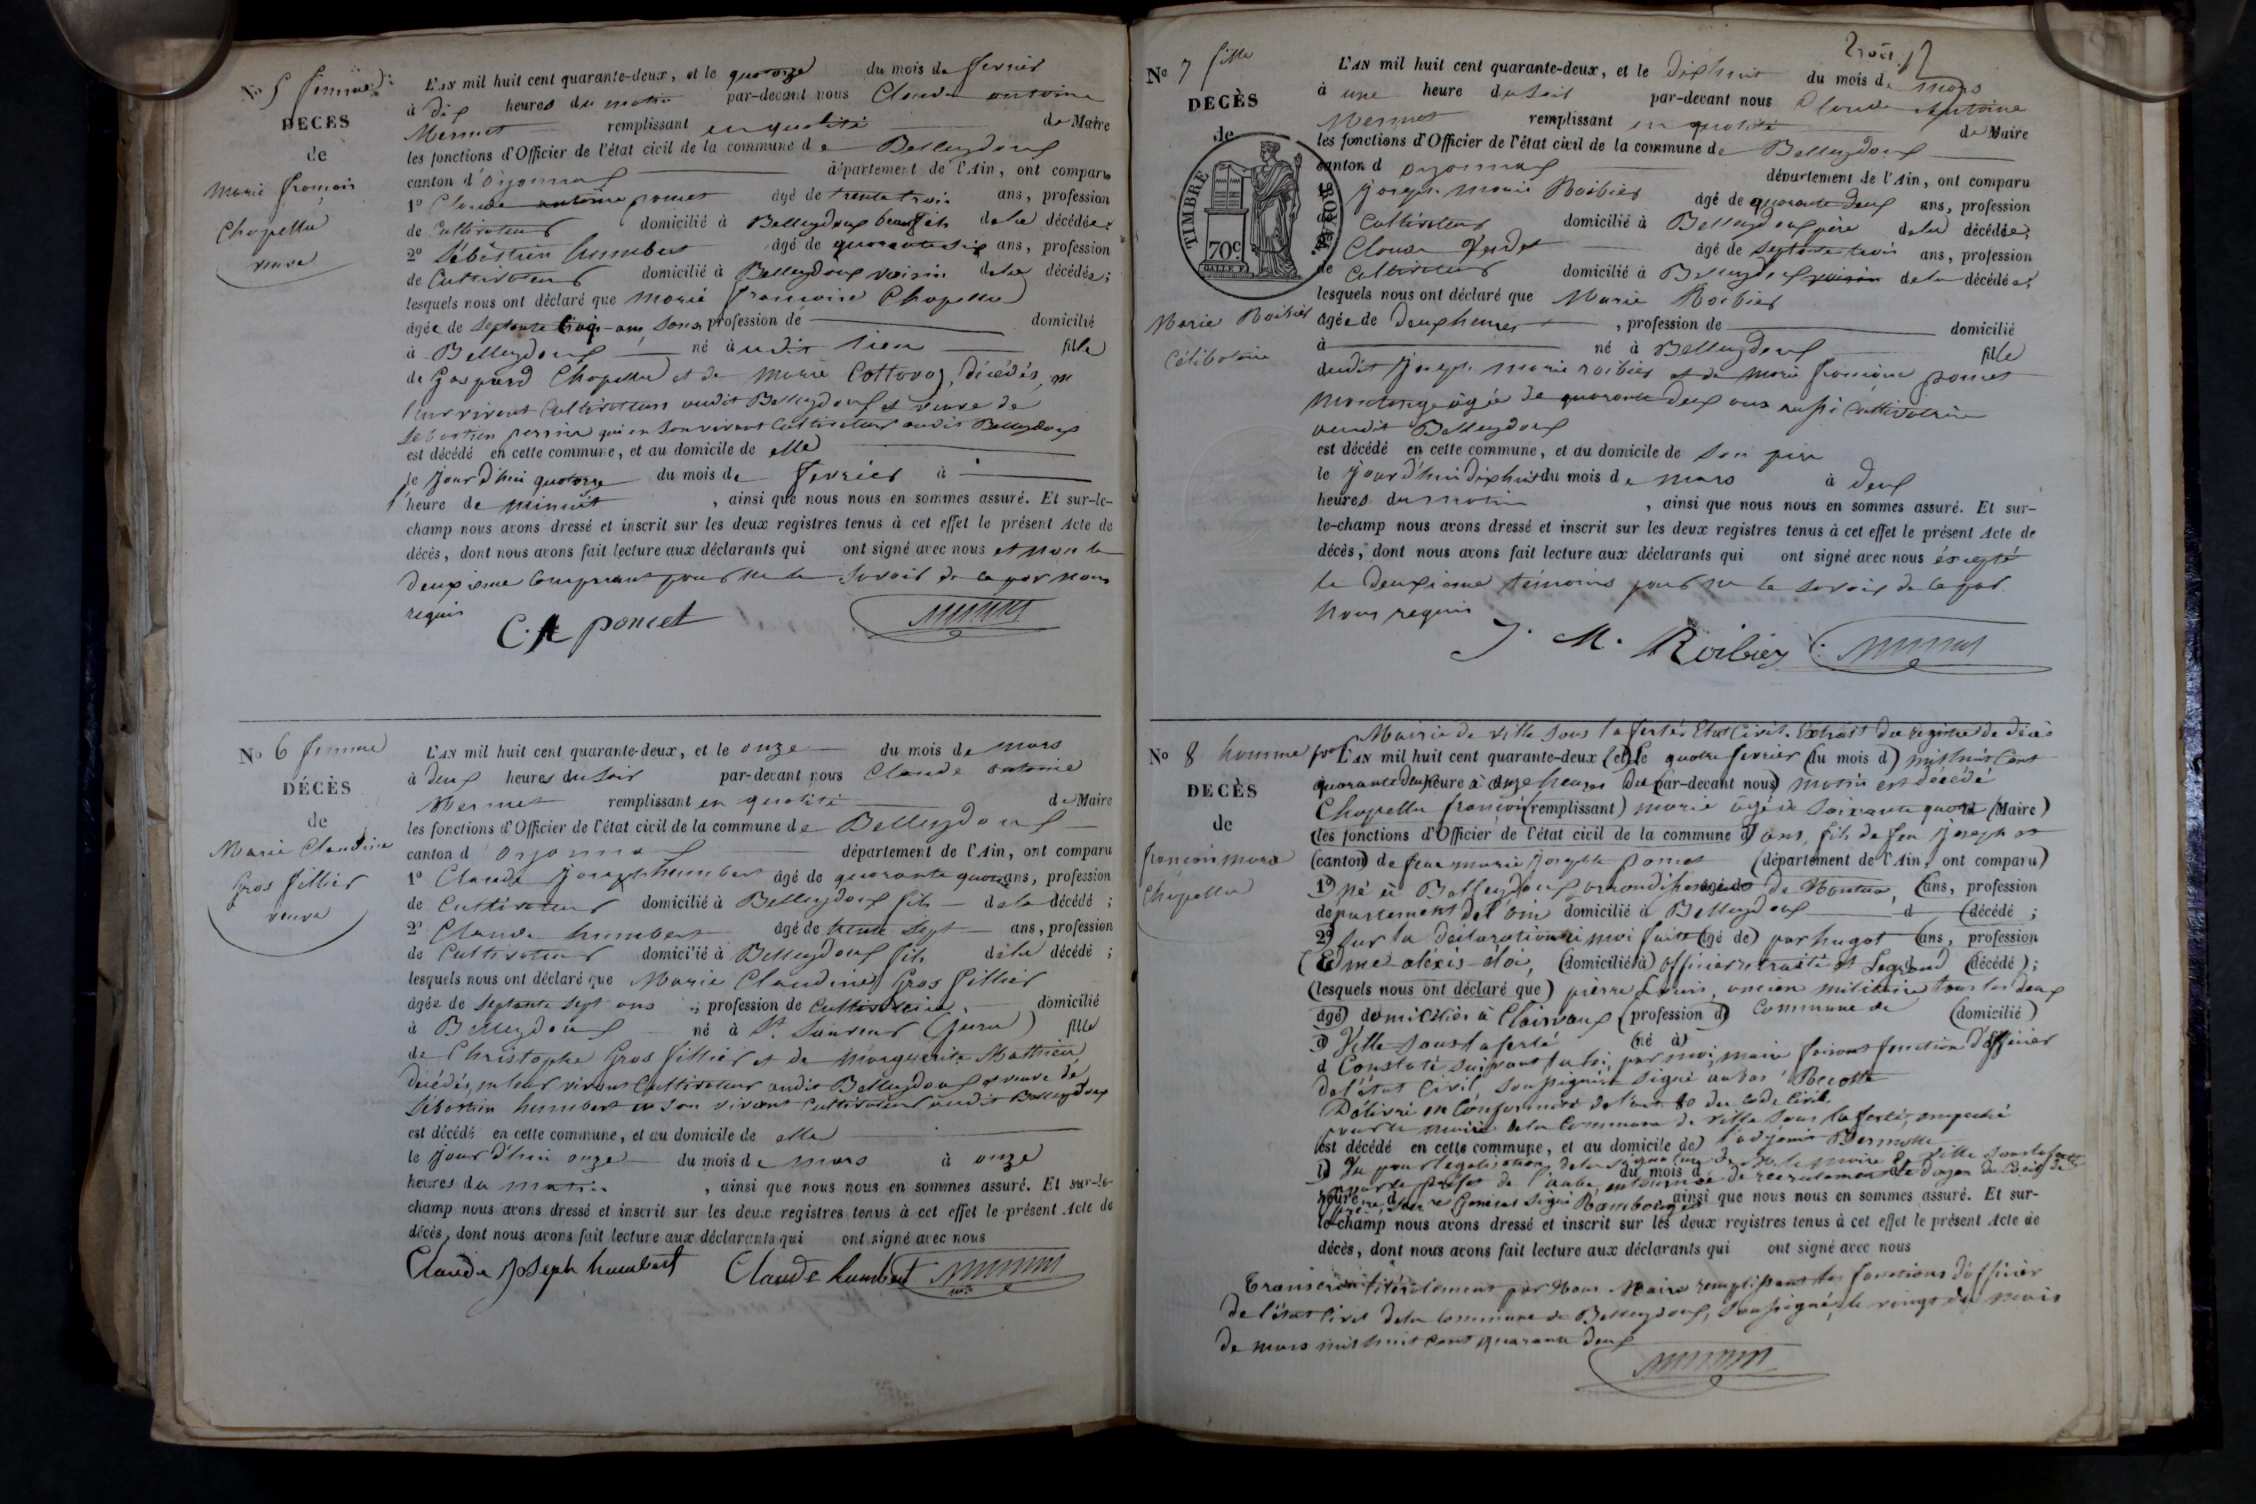 No 5 femme
DÉCÈS
de
Marie françoise
Chapellu
veuve
L'AN mil huit cent quarante-deux, et le quatorze du mois de fevrier
à dix heures du matin par-devant nous Claude antoine
Mermet remplissant en qualité de Maire
les fonctions d'Officier de l'état civil de la commune de Belleydoux
canton d'oyonnax département de l'Ain, ont comparu
1º Claude antoine poncet âgé de trente trois ans, profession
de Cultivateur domicilié à Belleydoux beaufils de la décédée;
2º Sébastien humbert âgé de quarante six ans, profession
de Cultivateur domicilié à Belleydoux voisin de la décédée;
lesquels nous ont déclaré que Marie francoise Chapellu
âgée de septante cinq ans, sans profession de domicilié
à Belleydoux né audit lieu fille
de Gaspard Chapellu et de Marie Cottavoz, décédés, en
leur vivant Cultivateurs audit Belleydoux et veuve de
Sebastien perrin qui en son vivant Cultivateur audit Belleydoux
est décédé en cette commune, et au domicile de elle
le jour d'hui quatorze du mois de fevrier à
l'heure de minuit, ainsi que nous nous en sommes assuré. Et sur-le-
champ nous avons dressé et inscrit sur les deux registres tenus à cet effet le présent Acte de
décès, dont nous avons fait lecture aux déclarants qui ont signé avec nous et non le
deuxieme comparant pour ne le savoir de ce par nous
requis
C. A poncet Mermet
No 6 femme
DÉCÈS
de
Marie Claudine
Gros fillier
veuve
L'AN mil huit cent quarante-deux, et le onze du mois de mars
à deux heures du soir par-devant nous Claude antoine
Mermet remplissant en qualité de Maire
les fonctions d'Officier de l'état civil de la commune de Belleydoux
canton d oyonnax département de l'Ain, ont comparu
1º Claude Joseph humbert âgé de quarante quatre ans, profession
de Cultivateur domicilié à Belleydoux fils de la décédé;
2º Claude humbert âgé de trente sept ans, profession
de Cultivateur domicilié à Belleydoux fils de la décédé;
lesquels nous ont déclaré que Marie Claudine Gros fillier
âgée de septante sept ans; profession de Cultivatrice, domicilié
à Belleydoux né à St. Sauveur (Jura) fille
de Christophe Gros fillier et de Marguerite Mathieu
décédés, en leur vivant Cultivateur audit Belleydoux et veuve de
Sébastien humbert en son vivant cultivateur audit Belleydoux
est décédé en cette commune, et au domicile de elle
le jour d'hui onze du mois de mars à onze
heures du matin, ainsi que nous nous en sommes assuré. Et sur-le-
champ nous avons dressé et inscrit sur les deux registres tenus à cet effet le présent Acte de
décès, dont nous avons fait lecture aux déclarants qui ont signé avec nous
Claude joseph humbert Claude humbert Mermet
trois
No 7 fille
DÉCÈS
de
TIMBRE ROYAL
70c
Marie Roibier
Célibataire
L'AN mil huit cent quarante-deux, et le dixhuit du mois de mars
à une heure du soir par-devant nous Claude Antoine
Mermet remplissant en qualité de Maire
les fonctions d'Officier de l'état civil de la commune de Belleydoux
canton d oyonnax département de l'Ain, ont comparu
Joseph marie Roibier âgé de quarante deux ans, profession
de Cultivateur domicilié à Belleydoux père de la décédée;
Claude Verdet âgé de septante trois ans, profession
de Cultivateur domicilié à Belleydoux voisin de la décédée;
lesquels nous ont déclaré que Marie Roibier
âgée de deux heures, profession de domicilié
à né à Belleydoux fille
dudit Joseph marie roibier et de Marie françoise poncet
âgée de quarante deux ans aussi Cultivatrice
audit Belleydoux
est décédé en cette commune, et au domicile de son père
le jour d'hui dixhuit du mois de mars à deux
heures du matin, ainsi que nous nous en sommes assuré. Et sur-
le-champ nous avons dressé et inscrit sur les deux registres tenus à cet effet le présent Acte de
décès, dont nous avons fait lecture aux déclarants qui ont signé avec nous excepté
le deuxieme témoins pour ne le savoir de ce par
nous requis
J. M. Roibier Mermet
No 8 homme
DÉCÈS
de
françois marie
Chapellu
Mairie de ville sous la ferté. Etat Civil. Extrait du registre de décès
L'AN mil huit cent quarante-deux (et) le quatre fevrier (du mois d) mil huit cent
quarante deux heure à onze heures du (par-devant nous) matin est décédé
Chapellu françois (remplissant) marie âgé de soixante quatre (Maire)
(les fonctions d'Officier de l'état civil de la commune d) ans, fils de feu Joseph et
(canton) de feue marie Josephte poncet (département de l'Ain, ont comparu)
1º Né à Belleydoux arrondissement de Nantua, (ans, profession
departement de l'ain domicilié à Belleydoux d (décédé;
2º sur la déclaration à moi faite (âgé de) par hugot (ans, profession
(Edme alexis éloi, (domicilié à) officier retraité et Legrand (décédé);
(lesquels nous ont déclaré que) pierre Louis, ancien militaire tous les deux
âgé) domiciliés à Clairvaux (profession d) Commune de (domicilié)
à Ville sous la ferté (né à)
d Constaté suivant la loi, par moi, maire faisant fonction d'officier
de l'état Civil soussigné. signé au bas
Délivré en Conformité de l'art. 80 du Code Civil.
pour le maire de la Commune de ville sous la ferté, empeché
(est décédé en cette commune, et au domicile de) l'adjoint
le Vu pour légalisation de la signature de Mr. le maire de ville sous la ferté
du mois d
ainsi que nous nous en sommes assuré. Et sur-
le-champ nous avons dressé et inscrit sur les deux registres tenus à cet effet le présent Acte de
décès, dont nous avons fait lecture aux déclarants qui ont signé avec nous
Transcrit littéralement par Nous Maire remplissant les fonctions d'officier
de l'état Civil de la Commune de Belleydoux, soussigné, le vingt du mois
de mars mil huit cent quarante deux
Mermet